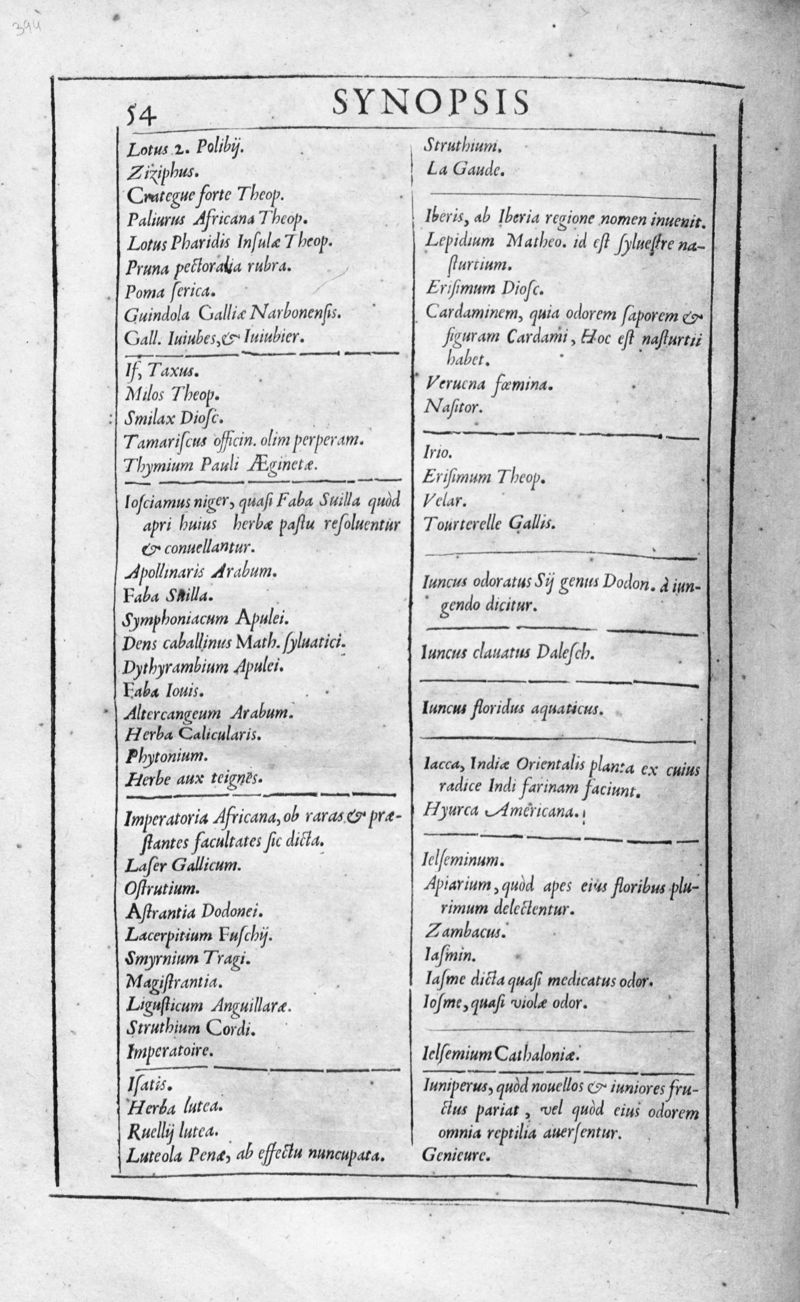 394
54
SYNOPSIS
Lotus 2. Polibij.
Ziziphus.
Crategue forte Theop.
Paliurus Africana Theop.
Lotus Pharidis Inſulæ Theop.
Pruna pectoralia rubra.
Poma ſerica.
Guindola Galliæ Narbonenſis.
Gall. Iuiubes, & Iuiubier.
If, Taxus.
Milos Theop.
Smilax Dioſc.
Tamariſcus officin. olim perperam.
Thymium Pauli Æginetæ.
Ioſciamus niger, quaſi Faba Suilla quòd
apri huius herbæ paſtu reſoluentur
& conuellantur.
Apollinaris Arabum.
Faba Suilla.
Symphoniacum Apulei.
Dens caballinus Math. ſyluatici.
Dythyrambium Apulei.
Faba Iouis.
Altercangeum Arabum.
Herba Calicularis.
Phytonium.
Herbe aux teignes.
Imperatoria Africana, ob raras & præ-
ſtantes facultates ſic dicta.
Laſer Gallicum.
Oſtrutium.
Aſtrantia Dodonei.
Lacerpitium Fuſchij.
Smyrnium Tragi.
Magiſtrantia.
Liguſticum Anguillaræ.
Struthium Cordi.
Imperatoire.
Iſatis.
Herba lutea.
Ruellij lutea.
Luteola Penæ, ab effectu nuncupata.
Struthium.
La Gaude.
Iberis, ab Iberia regione nomen inuenit.
Lepidium Matheo. id eſt ſylueſtre na-
ſturtium.
Eriſimum Dioſc.
Cardaminem, quia odorem ſaporem &
figuram Cardami, Hoc eſt naſturtii
habet.
Veruena fœmina.
Naſitor.
Irio.
Eriſimum Theop.
Velar.
Tourterelle Gallis.
Iuncus odoratus Sij genus Dodon. à iun-
gendo dicitur.
Iuncus clauatus Daleſch.
Iuncus floridus aquaticus.
Iacca, Indiæ Orientalis planta ex cuius
radice Indi farinam faciunt.
Hyurca Américana.
Ielſeminum.
Apiarium, quòd apes eius floribus plu-
rimum delectentur.
Zambacus.
Iaſmin.
Iaſme dicta quaſi medicatus odor.
Ioſme, quaſi violæ odor.
Ielſemium Cathaloniæ.
Iuniperus, quòd nouellos & iuniores fru-
ctus pariat, vel quòd eius odorem
omnia reptilia auerſentur.
Genieure.